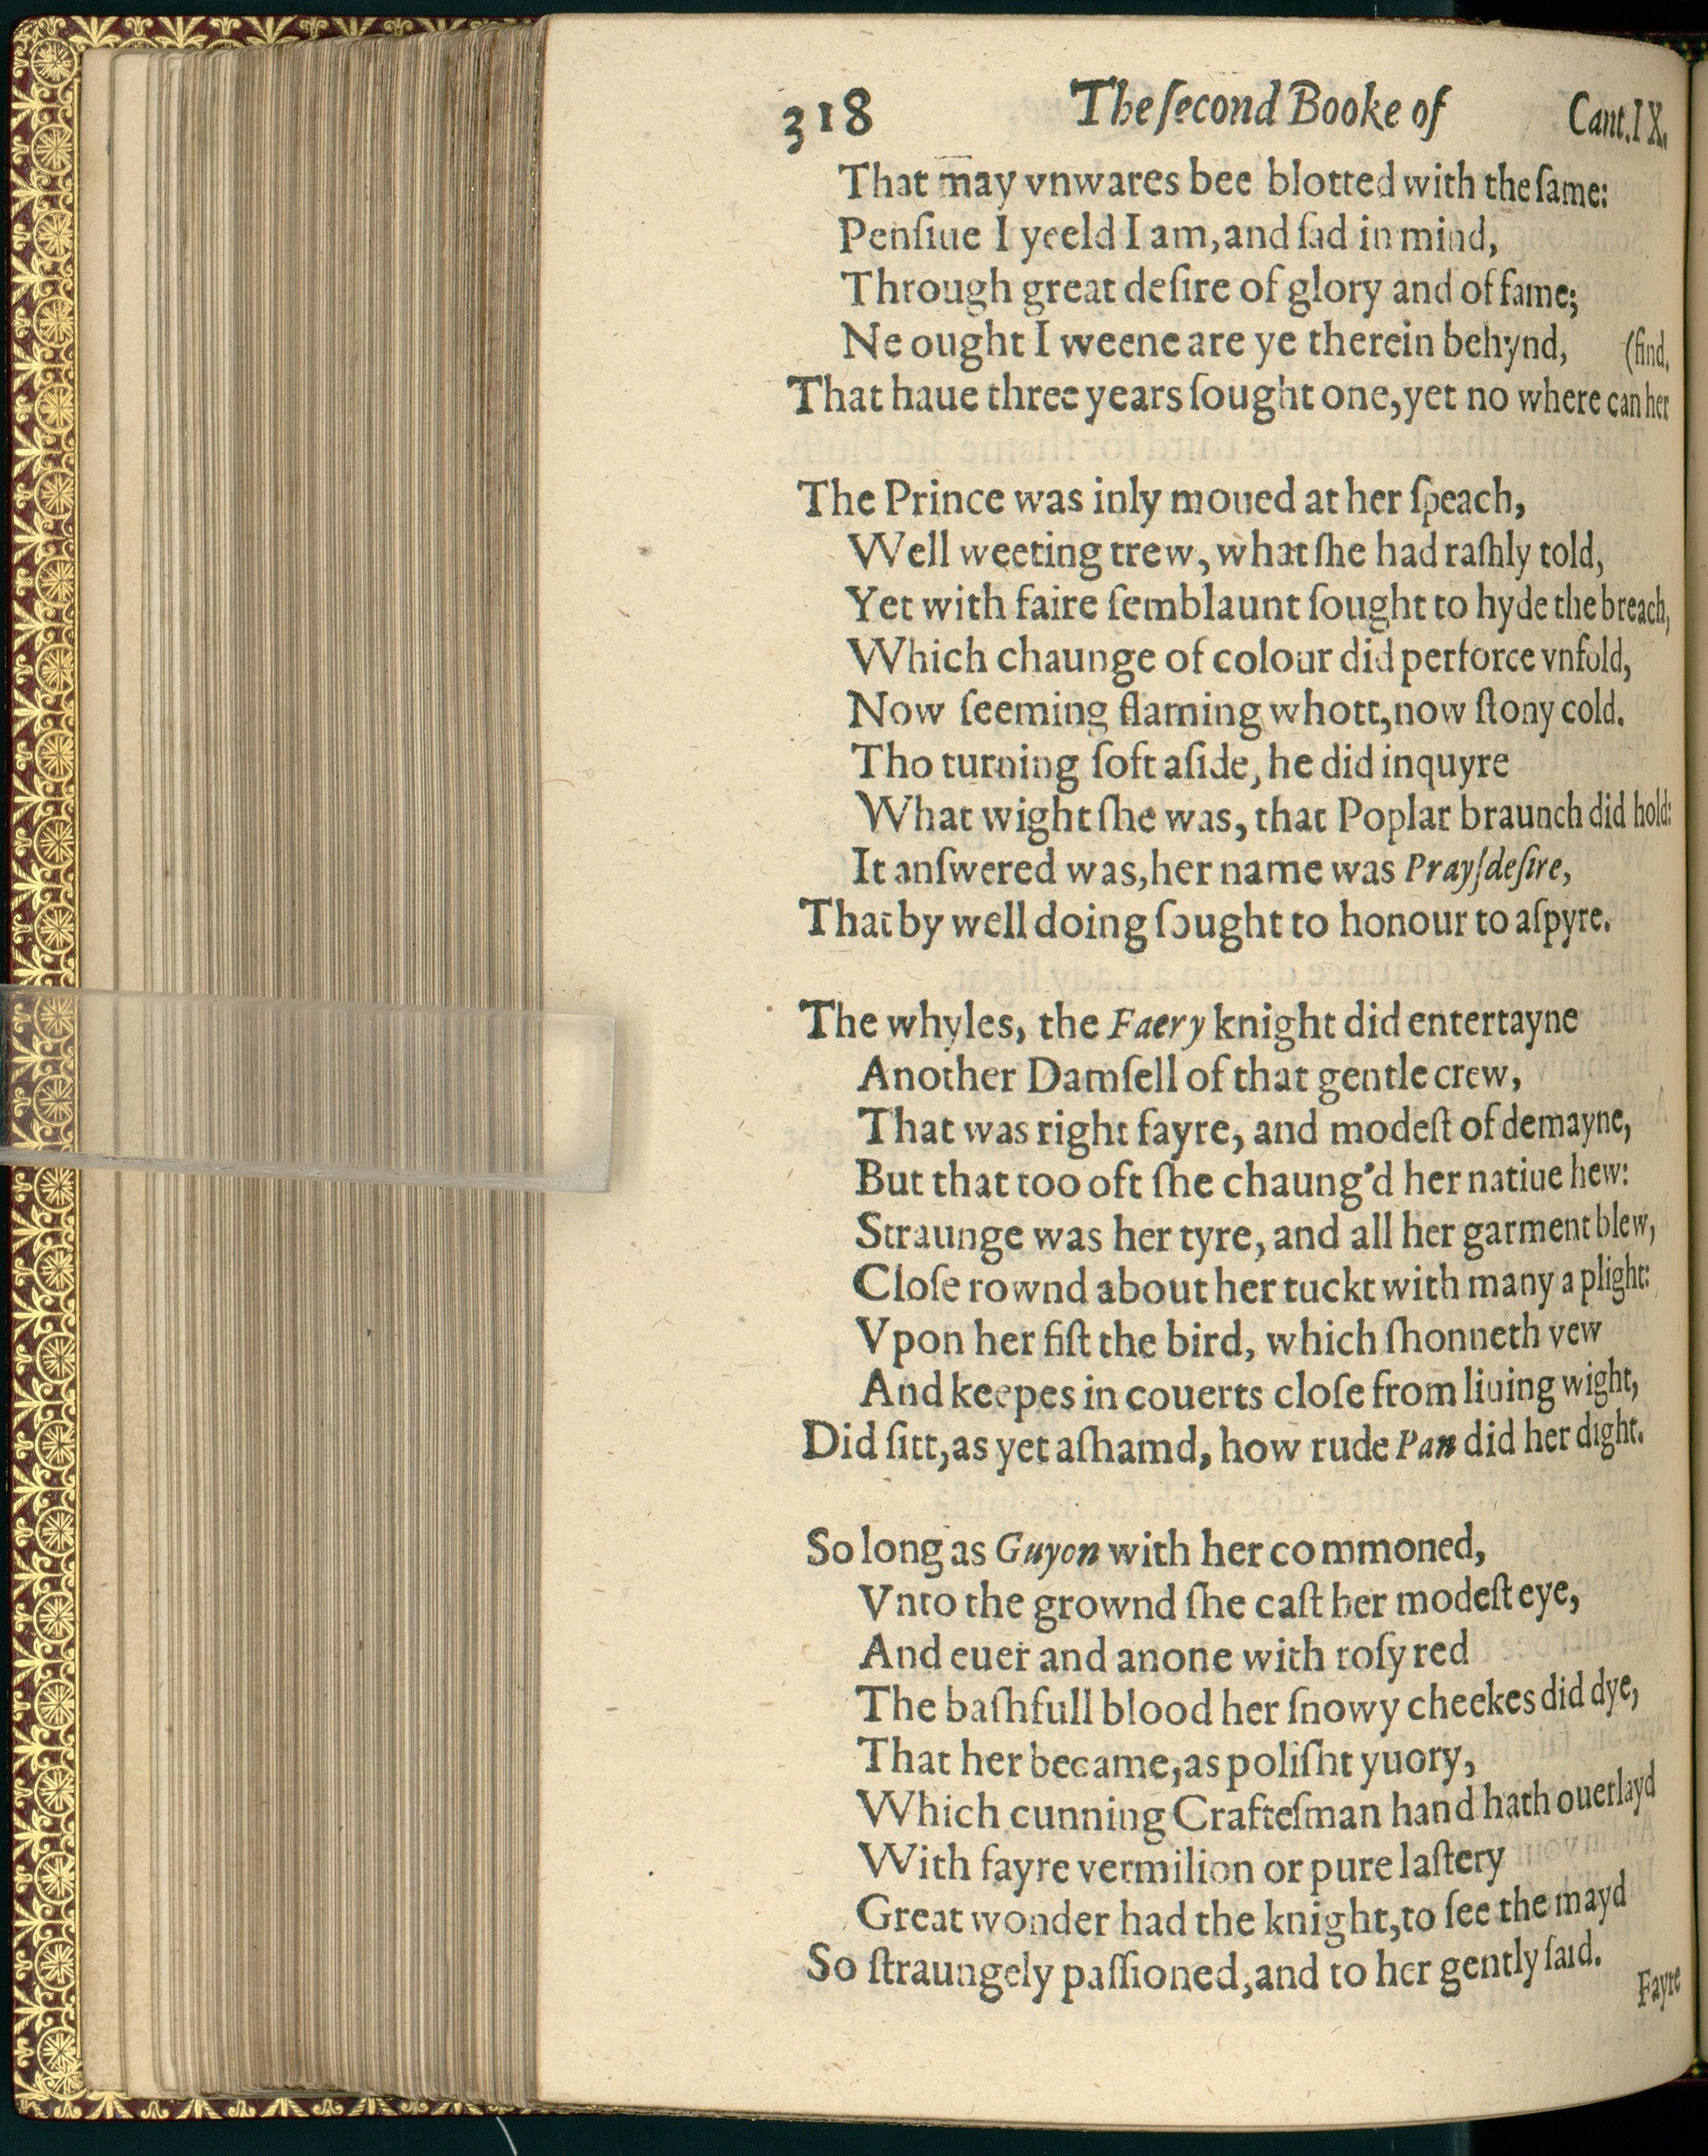 318 The ſecond Booke of Cant. IX.
That may vnwares bee blotted with the ſame:
Penſiue I yeeld I am, and ſad in mind,
Through great deſire of glory and of fame;
Ne ought I weene are ye therein behynd, (find.
That haue three years ſought one, yet no where can her
The Prince was inly moued at her ſpeach,
Well weeting trew, what ſhe had raſhly told,
Yet with faire ſemblaunt ſought to hyde the breach,
Which chaunge of colour did perforce vnfold,
Now ſeeming flaming whott, now ſtony cold.
Tho turning ſoft aſide, he did inquyre
What wight ſhe was, that Poplar braunch did hold:
It anſwered was, her name was Prayſdeſire,
That by well doing ſought to honour to aſpyre.
The whyles, the Faery knight did entertayne
Another Damſell of that gentle crew,
That was right fayre, and modeſt of demayne,
But that too oft ſhe chaung'd her natiue hew:
Straunge was her tyre, and all her garment blew,
Cloſe rownd about her tuckt with many a plight:
Vpon her fiſt the bird, which ſhonneth vew
And keepes in couerts cloſe from liuing wight,
Did ſitt, as yet aſhamd, how rude Pan did her dight.
So long as Guyon with her commoned,
Vnto the grownd ſhe caſt her modeſt eye,
And euer and anone with roſy red
The baſhfull blood her ſnowy cheekes did dye,
That her became, as poliſht yuory,
Which cunning Crafteſman hand hath ouerlayd
With fayre vermilion or pure laſtery
Great wonder had the knight, to ſee the mayd
So ſtraungely paſſioned, and to her gently ſaid.
Fayre